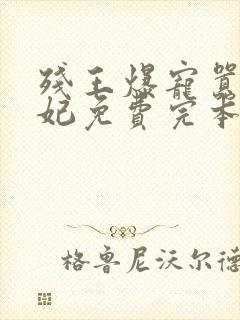 残王爆寵囂
妃免費完本
格鲁尼沃尔德